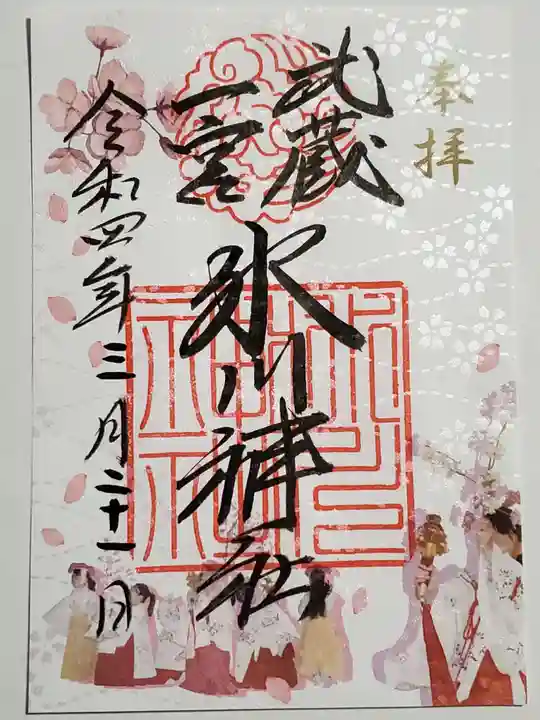 奉拝
武蔵
一宮
氷川神社
令和四年三月二十一日
氷川神社